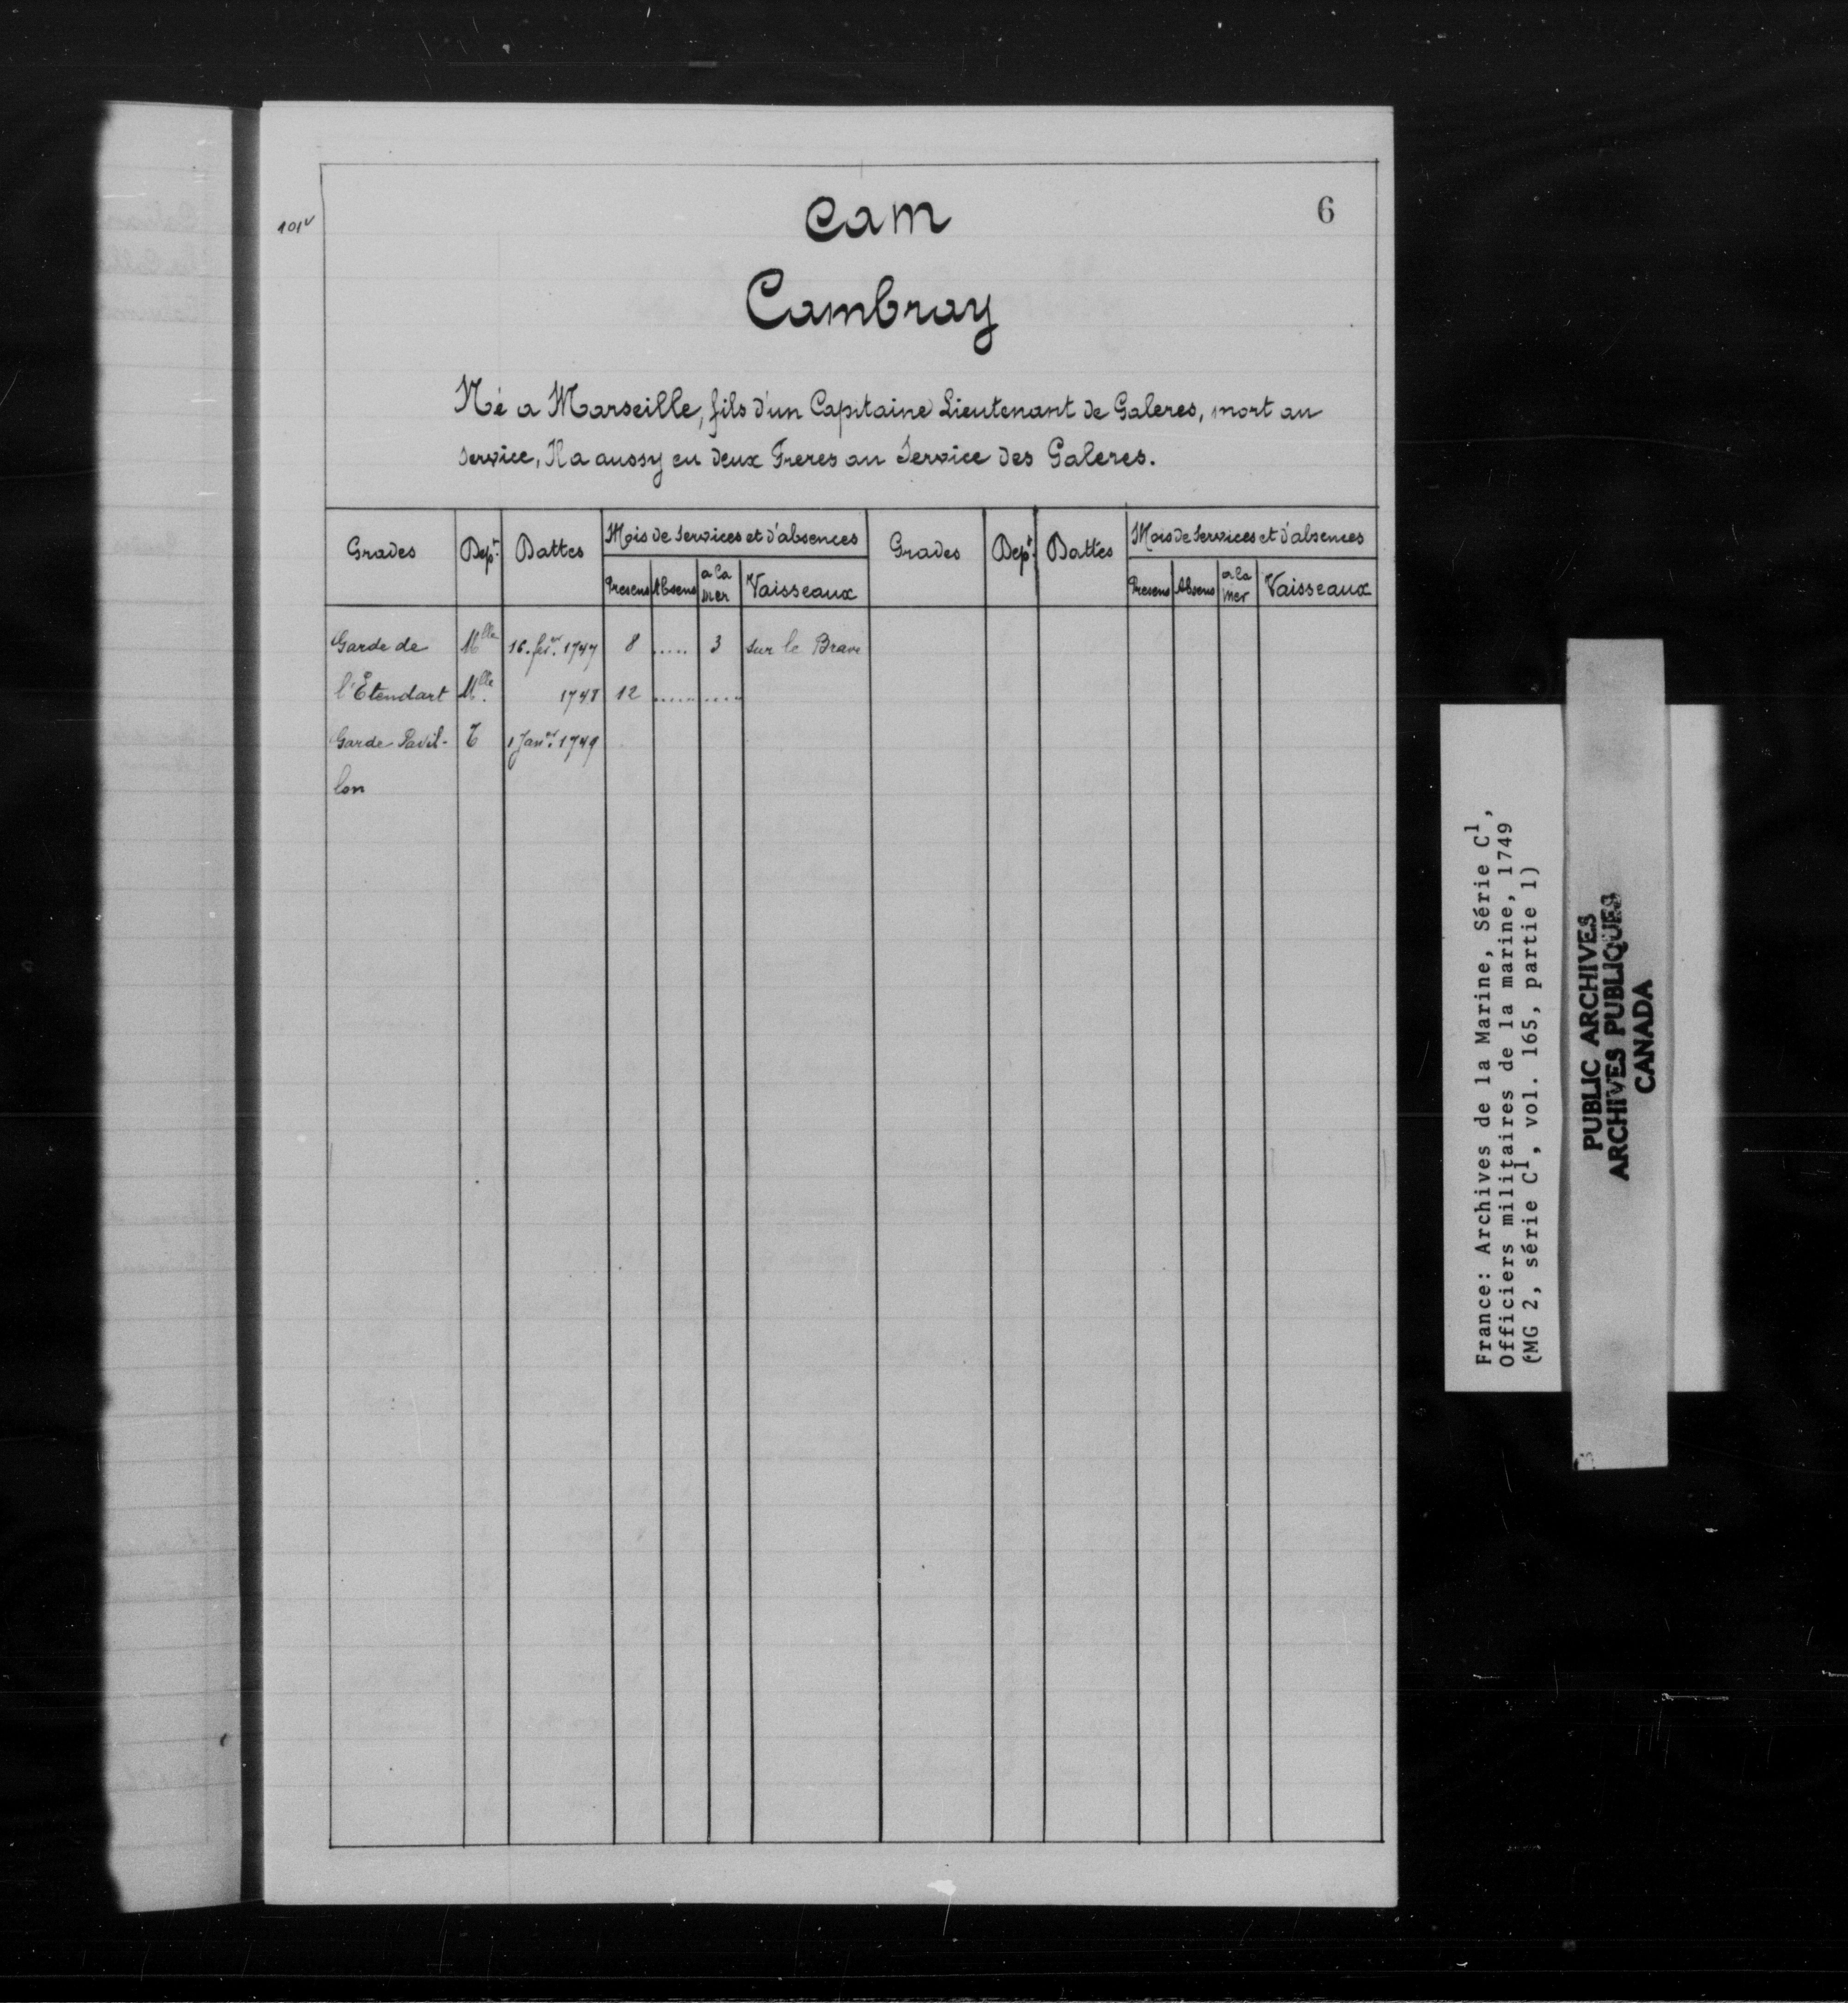 101v
6
Cam
Cambray
Né a Marseille, fils d'un Capitaine Lieutenant de Galeres, mort au
service, Il a aussy eu deux Freres au Service des Galeres.
Grades Dept. Dattes Mois de Services et d'absences Grades Dept. Dattes Mois de Services et d'absences
Presens Absens a la mer Vaisseaux Presens Absens a la mer Vaisseaux
Garde de Mlle 16. fer. 1747 8 ..... 3 sur le Brave
l'Étendart Mlle. 1748 12 ...... ....
Garde Pavil- T 1 Janer. 1749
lon
France: Archives de la Marine, Série C1,
Officiers militaires de la marine, 1749
(MG 2, série C1, vol. 165, partie 1)
PUBLIC ARCHIVES
ARCHIVES PUBLIQUES
CANADA